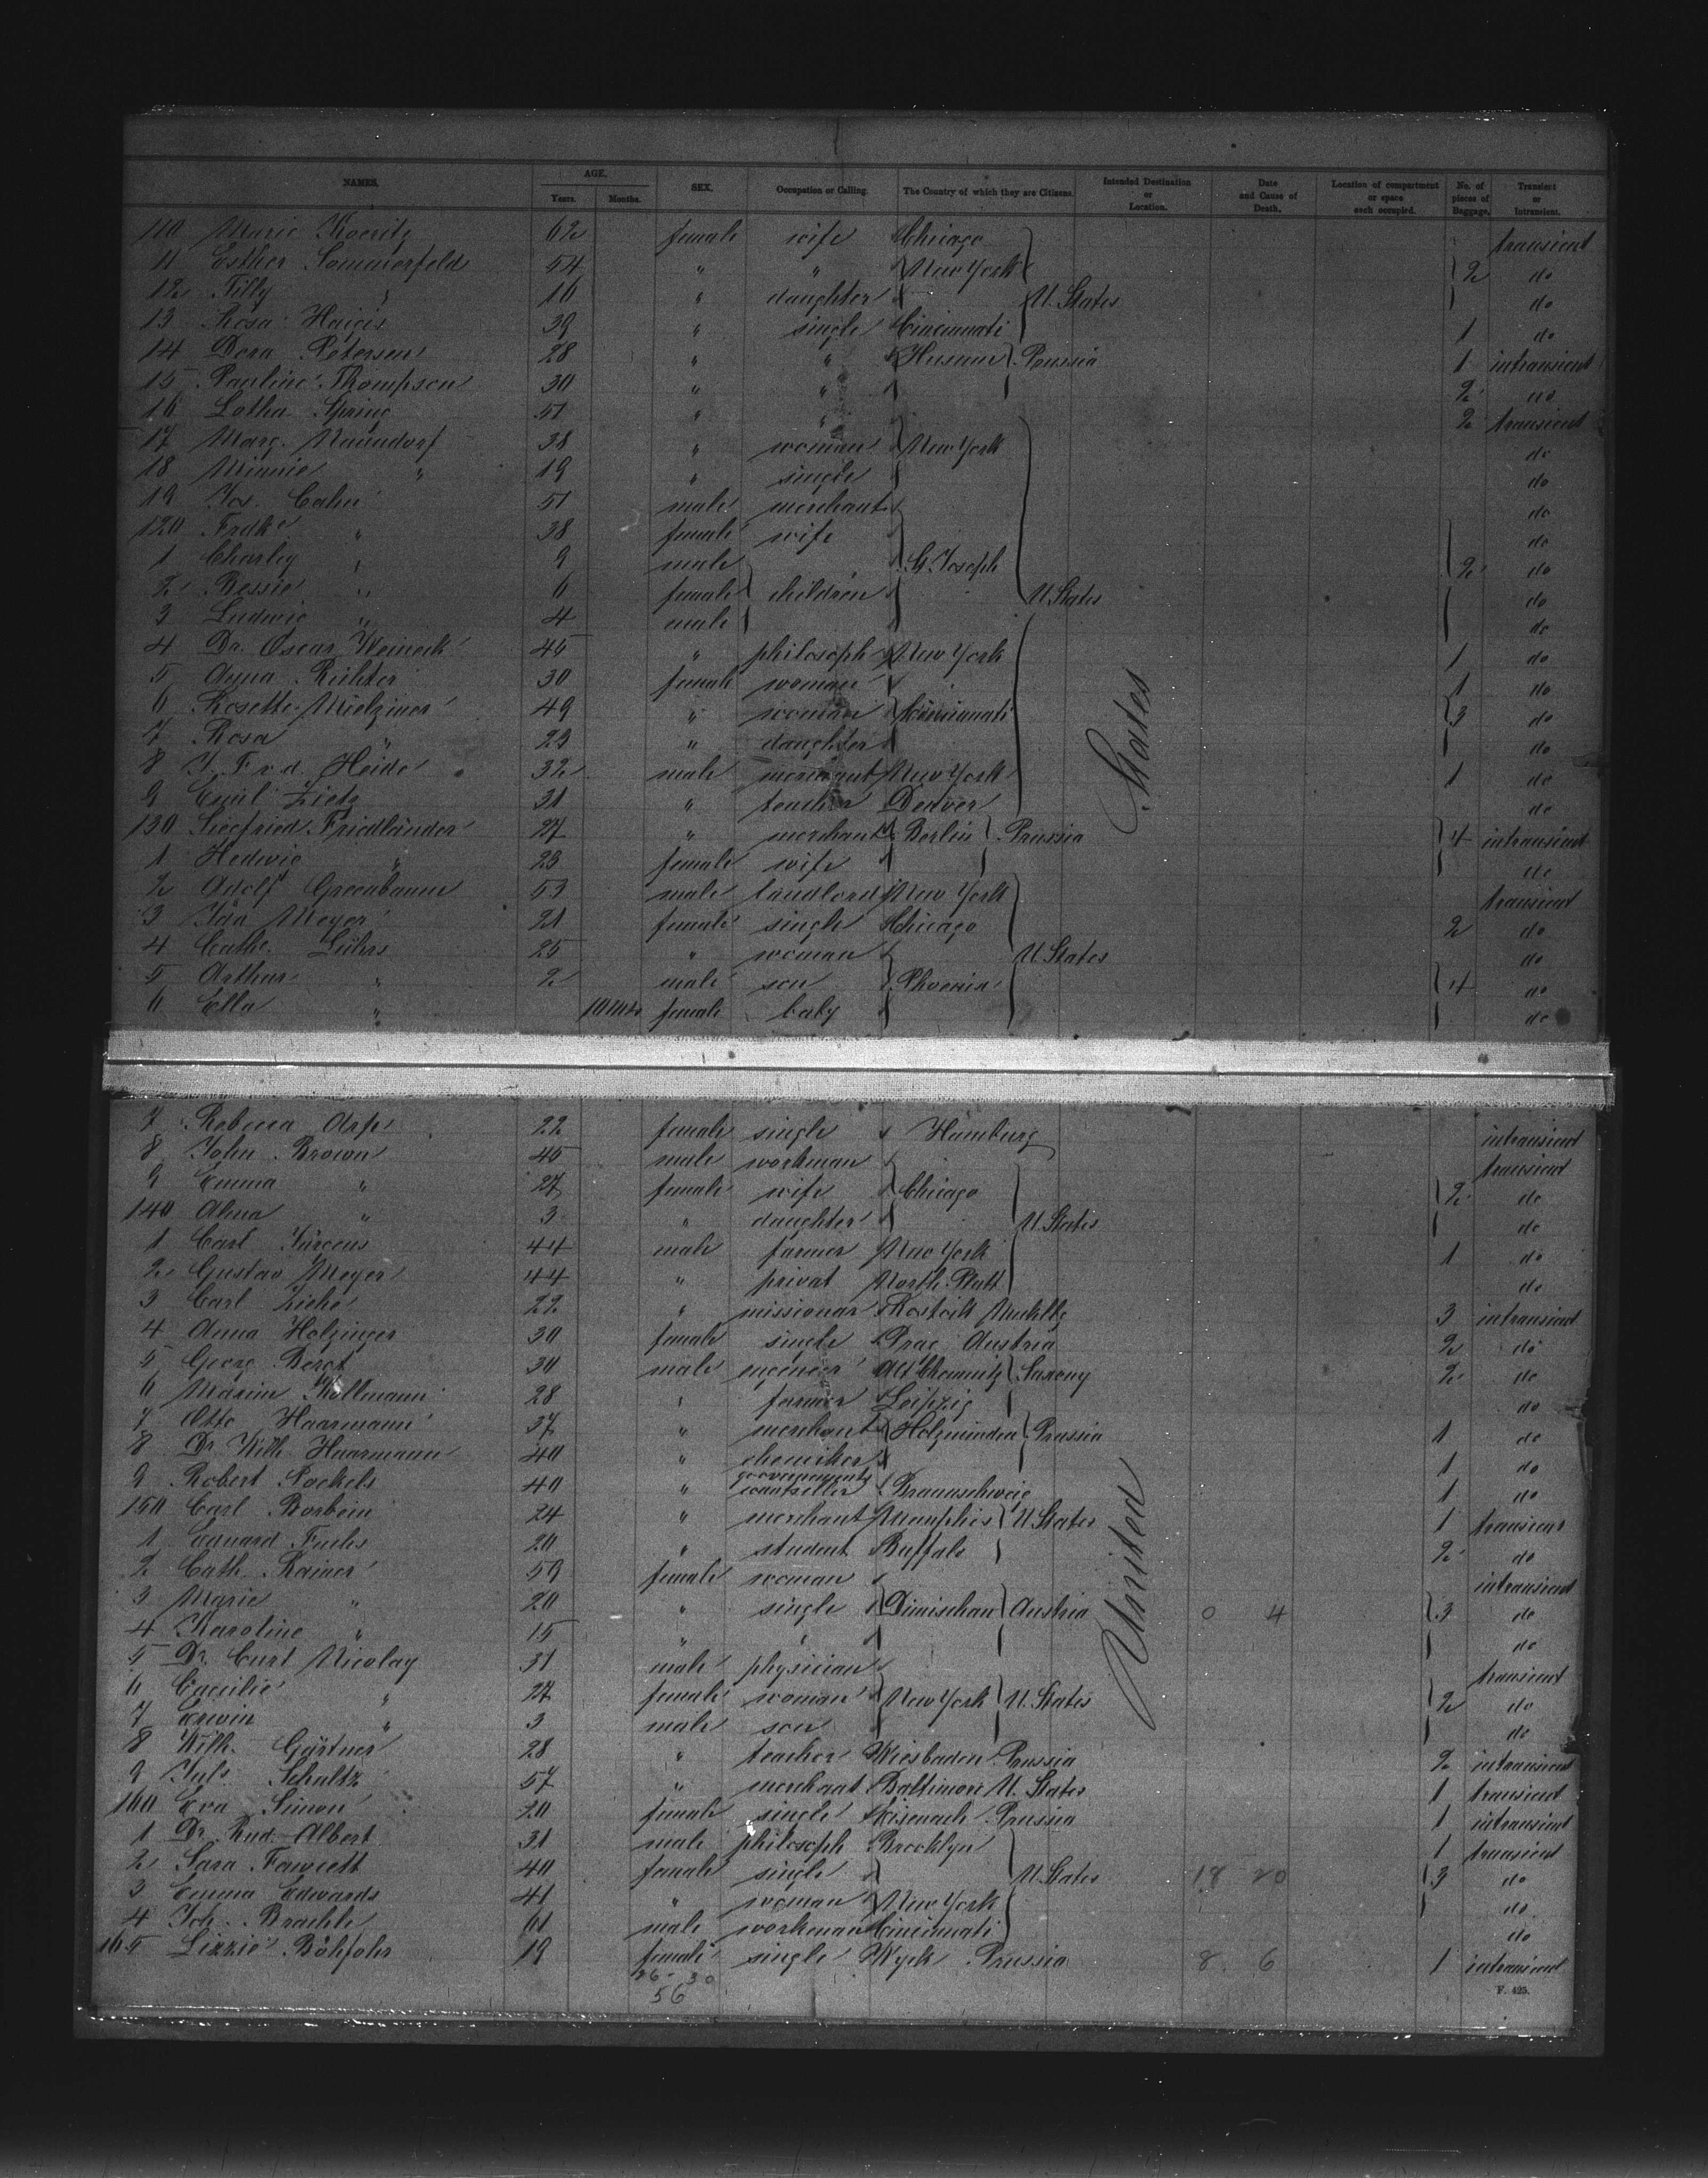 NAMES. AGE. Years. Months. SEX. Occupation or Calling. The Country of which they are Citizens. Intended Destination or Location. Date and Cause of Death. Location of compartment or space each occupied. No. of pieces of Baggage. Transient or Intransient.
110 Marie 62 female wife Chicago transient
11 Esther Sommerfeld 54 " " New York 2 do
12 Tilly " 16 " daughter U. States do
13 Rosa 39 " single Cincinnati 1 do
14 Dora Petersen 28 " " Husum Prussia 1 intransient
15 Pauline Thompson 30 " " 2 do
16 Lotha Spring 51 " " 2 transient
17 Marg. Naundorf 38 " woman New York do
18 Minnie " 19 " single do
19 Jos. Cahn 51 male merchant do
120 Fredke " 38 female wife do
1 Charley " 9 male St. Joseph 2 do
2 Bessie " 6 female children U. States do
3 Ludwig " 4 male do
4 Dr. Oscar 45 " philosoph New York 1 do
5 Anna Richter 30 female woman 1 do
6 Rosette Mielziner 49 " woman Cincinnati 3 do
7 Rosa " 23 " daughter do
8 Heide 32 male merchant New York 1 do
9 Emil Zietz 31 " teacher Denver do
130 Siegfried Friedländer 27 " merchant Berlin Prussia 4 intransient
1 Hedwig " 23 female wife do
2 Adolf Greenbaum 53 male landlord New York transient
3 Ida Meyer 21 female single Chicago 2 do
4 Cathe. Lührs 25 " woman U. States do
5 Arthur " 2 male son Phoenix 4 do
6 Ella " 10 mts female baby do
7 Rebecca Arp 22 female single Hamburg intransient
8 John Brown 45 male workman transient
9 Emma " 27 female wife Chicago 2 do
140 Alma " 3 " daughter U. States do
1 Carl Jürgens 44 male farmer New York 1 do
2 Gustav Meyer 44 " privat North Platt do
3 Carl Ziehe 22 " missionar 3 intransient
4 Anna Holzinger 30 female single Prag Austria 2 do
5 Georg 30 male Alt Chemnitz Saxony 2 do
6 Kollmann 28 " farmer Leipzig do
7 Otto Haarmann 37 " merchant Holzminden Prussia 1 do
8 Dr. Wilh. Haarmann 40 " chemiker 1 do
9 Robert Pockels 40 " Braunschweig 1 do
150 Carl Borbein 24 " merchant Memphis U. States 1 transient
1 Eduard Fuchs 20 " student Buffalo 2 do
2 Cath. Rainer 59 female woman intransient
3 Marie " 20 " single Austria 0 4 3 do
4 Karoline " 15 " " do
5 Dr. Curt Nicolay 31 male physician transient
6 Caecilie " 27 female woman New York U. States 2 do
7 Erwin " 3 male son do
8 Wilh. Gärtner 28 " teacher Wiesbaden Prussia 2 intransient
9 Juls. Schultz 57 " merchant Baltimore U. States 1 transient
160 Eva Simon 20 female single Eisenach Prussia 1 intransient
1 Dr. Rud. Albert 31 male philosoph Brooklyn 1 transient
2 Sara Fawcett 40 female single U. States 18 20 3 do
3 Emma Edwards 41 " woman New York do
4 Joh. 61 male workman Cincinnati do
165 Lizzie 19 female single Wyk Prussia 8 6 1 intransient
26 - 30
56
United States
F. 425.